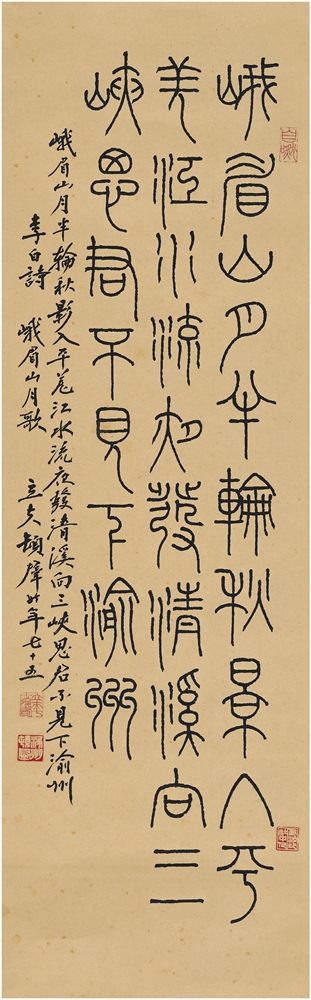 峨眉山月半輪秋景入平
羌江水流夜發清溪向三
峽思君不見下渝州
峨眉山月半輪秋影入平羌江水流夜發清溪向三峽思君不見下渝州
李白詩 峨眉山月歌 年七十五